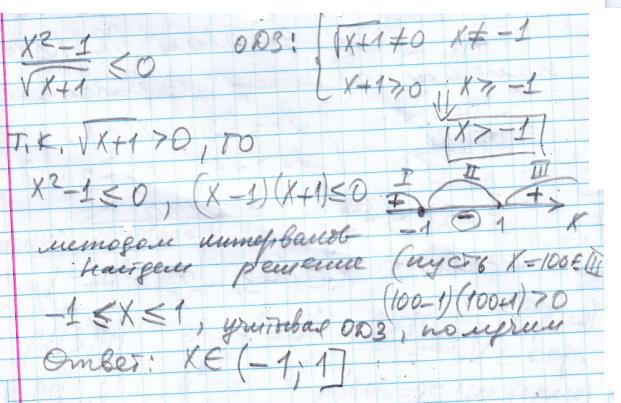 (x²-1)/√(x+1) ≤ 0 ОДЗ: { √(x+1) ≠ 0 x ≠ -1
x+1 ≥ 0 x ≥ -1
⇓
x > -1
т.к. √(x+1) > 0, то
x²-1 ≤ 0, (x-1)(x+1) ≤ 0
I II III
+ - +
-1 1 x
методом интервалов
найдем решение (пусть x=100 ∈ III
(100-1)(100+1) > 0
-1 ≤ x ≤ 1, учитывая ОДЗ, получим
Ответ: x ∈ (-1; 1]